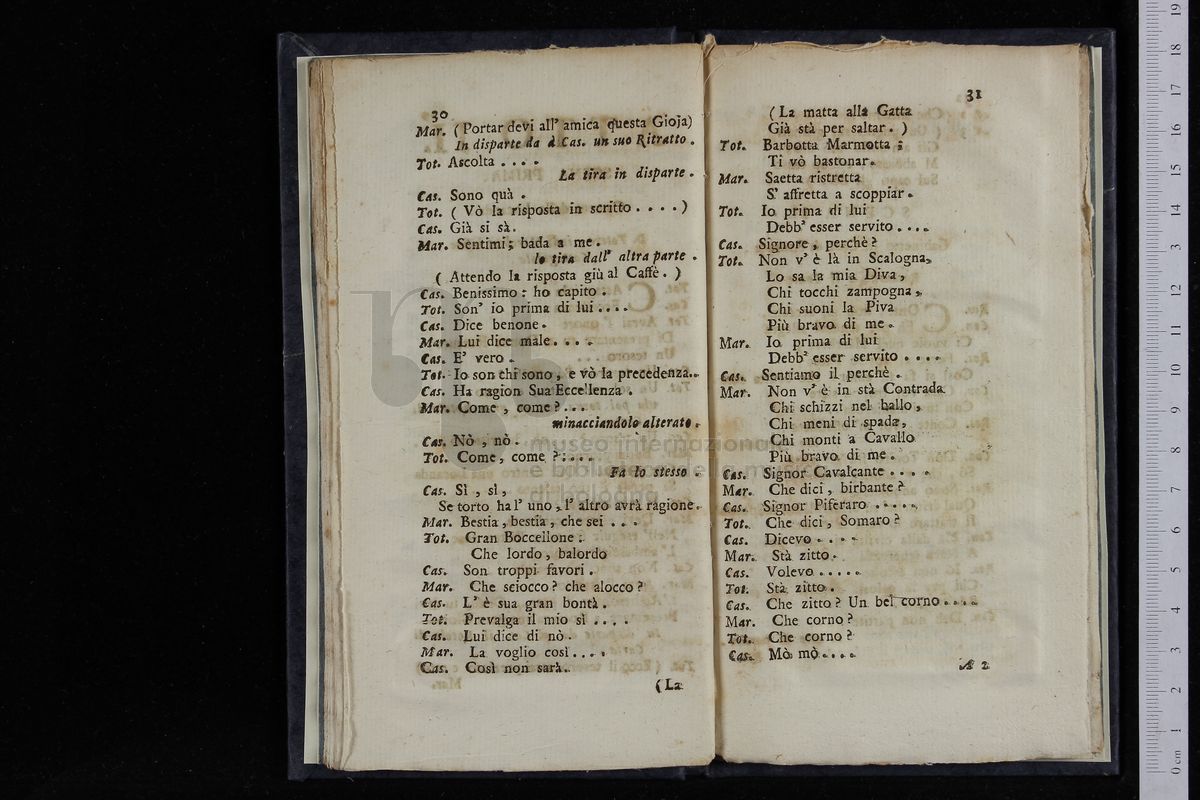 30
Mar. (Portar devi all' amica questa Gioja)
In disparte da a Cas. un suo Ritratto.
Tot. Ascolta . . . .
La tira in disparte.
Cas. Sono quà.
Tot. (Vò la risposta in scritto . . . .)
Cas. Già si sà.
Mar. Sentimi; bada a me.
lo tira dall' altra parte.
(Attendo la risposta giù al Caffè.)
Cas. Benissimo: ho capito.
Tot. Son' io prima di lui . . . .
Cas. Dice benone.
Mar. Lui dice male. . . .
Cas. E' vero.
Tot. Io son chi sono, e vò la precedenza..
Cas. Ha ragion Sua Eccellenza.
Mar. Come, come? . . .
minacciandolo alterato.
Cas. Nò, nò.
Tot. Come, come ? : . . .
Fa lo stesso.
Cas. Sì, sì,
Se torto ha l' uno, l' altro avrà ragione.
Mar. Bestia, bestia, che sei . . .
Tot. Gran Boccellone:
Che lordo, balordo
Cas. Son troppi favori.
Mar. Che sciocco? che alocco?
Cas. L' è sua gran bontà.
Tot. Prevalga il mio sì . . . .
Cas. Lui dice di nò.
Mar. La voglio così. . . .
Cas. Così non sarà.
(La
31
(La matta alla Gatta
Già stà per saltar.)
Tot. Barbotta Marmotta;
Ti vò bastonar.
Mar. Saetta ristretta
S' affretta a scoppiar.
Tot. Io prima di lui
Debb' esser servito . . . .
Cas. Signore, perchè?
Tot. Non v' è là in Scalogna,
Lo sa la mia Diva,
Chi tocchi zampogna,
Chi suoni la Piva
Più bravo di me.
Mar. Io prima di lui
Debb' esser servito . . . .
Cas. Sentiamo il perchè.
Mar. Non v' è in stà Contrada
Chi schizzi nel ballo,
Chi meni di spada,
Chi monti a Cavallo
Più bravo di me.
Cas. Signor Cavalcante . . . .
Mar. Che dici, birbante?
Cas. Signor Piferaro . . . . .
Tot. Che dici, Somaro?
Cas. Dicevo . . . .
Mar. Stà zitto.
Cas. Volevo . . . . .
Tot. Stà zitto.
Cas. Che zitto? Un bel corno . . . .
Mar. Che corno?
Tot. Che corno?
Cas. Mò mò . . . .
A 2
museo internazionale
e biblioteca della musica
di bologna
0 cm 1 2 3 4 5 6 7 8 9 10 11 12 13 14 15 16 17 18 19